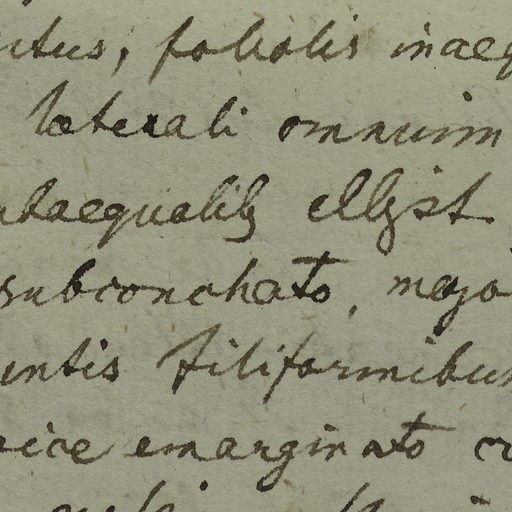 itus, foliolis inaeq
laterali omnium
ubaequalib; ellipt
subconchato, majo
untis filiformibus
pice emarginato c